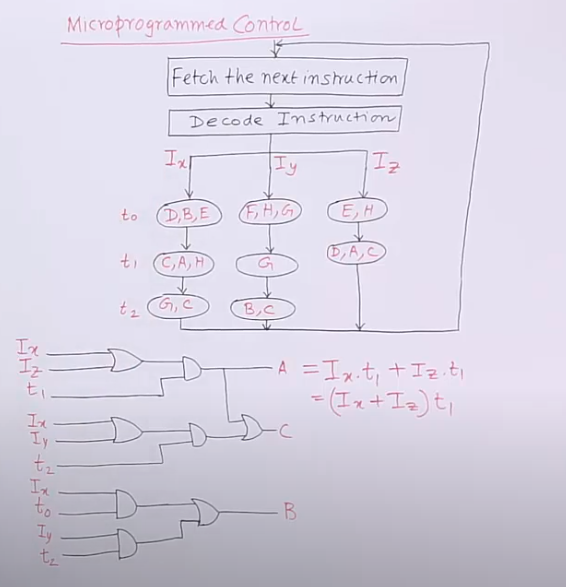 Microprogrammed Control
Fetch the next instruction
Decode Instruction
Ix Iy Iz
t0 D,B,E F,H,G E,H
t1 C,A,H G D,A,C
t2 G,C B,C
Ix
Iz
t1
A = Ix.t1 + Iz.t1
= (Ix + Iz) t1
Ix
Iy
t2
C
Ix
t0
B
Iy
t2